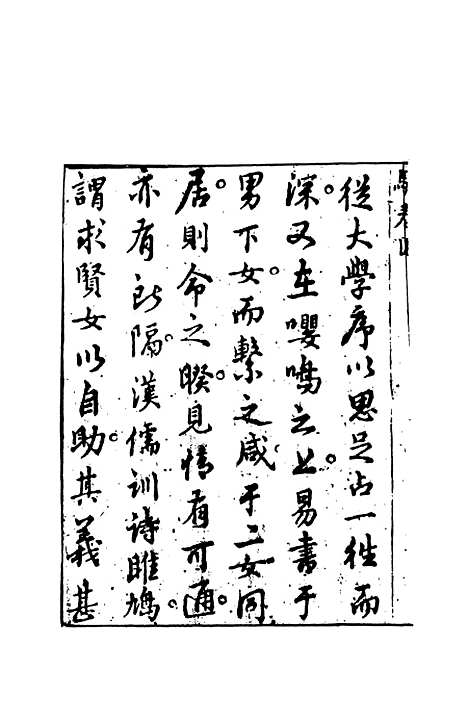 從大學序以思足占一往而
深又在嚶鳴之上易書于
男下女而繫之咸于二女同
居則命之睽見情有可通
亦有所隔漢儒訓詩雎鳩
謂求賢女以自助其義甚